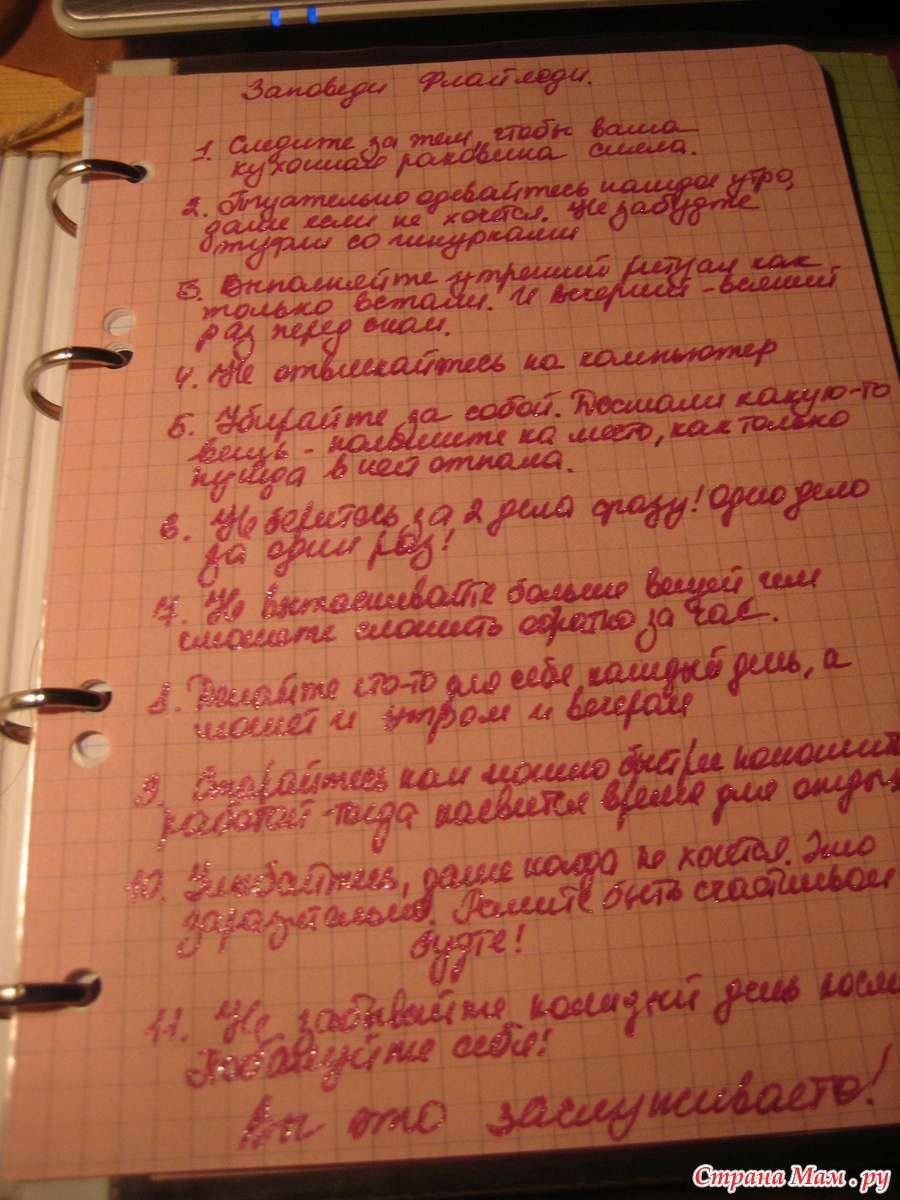 Заповеди Флайледи.
1. Следите за тем, чтобы ваша
кухонная раковина сияла.
2. Тщательно одевайтесь каждое утро,
даже если не хочется. Не забудте
туфли со шнурками
3. Выполняйте утренний ритуал как
только встали. И вечерний - всякий
раз перед сном.
4. Не отвлекайтесь на компьютер
5. Убирайте за собой. Достали какую-то
вещь - положите на место, как только
нужда в ней отпала.
6. Не беритесь за 2 дела сразу! Одно дело
за один раз!
7. Не вытаскивайте больше вещей чем
сможете сложить обратно за час.
8. Делайте что-то для себя каждый день, а
может и утром и вечером
9. Старайтесь как можно быстрее
работой - тогда появится время для отдых
10. Улыбайтесь, даже когда не хочется. Это
заразительно. Решите быть счастливой
будте!
11. Не забывайте каждый день
Побалуйте себя!
Вы это заслуживаете!
Страна Мам.ру